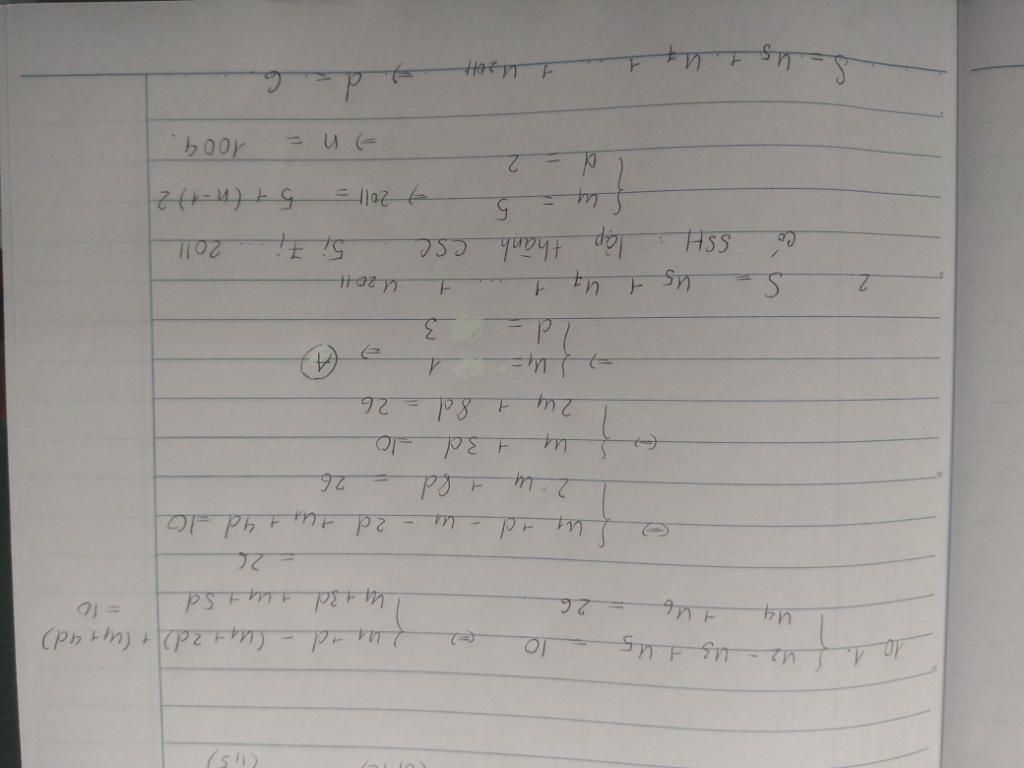 10. 1. { u2 - u3 + u5 = 10 (=) { u1 + d - (u1 + 2d) + (u1 + 4d) = 10
u4 + u6 = 26 u1 + 3d + u1 + 5d
= 26
(=) { u1 + d - u1 - 2d + u1 + 4d = 10
2 u1 + 8d = 26
(=) { u1 + 3d = 10
2u1 + 8d = 26
=) { u1 = 1 =) A
d = 3
2. S = u5 + u7 + ... + u2011
có SSH : lập thành CSC 5; 7; ... 2011
{ u1 = 5 =) 2011 = 5 + (n-1) 2
d = 2
=) n = 1004.
S = u5 + u7 + ... + u2011 =) d = 6